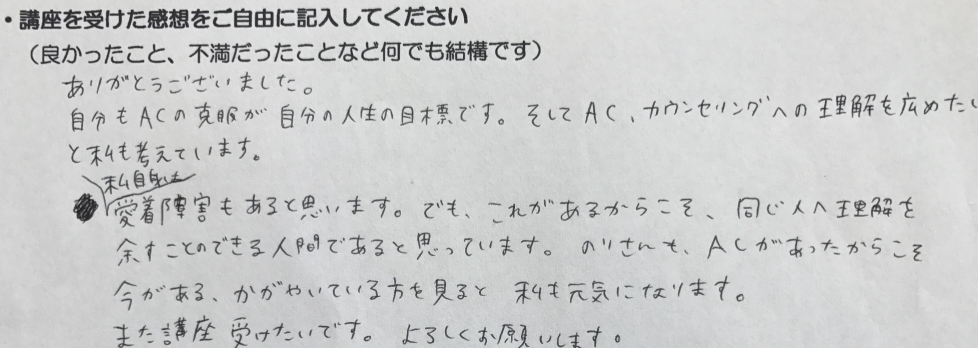 ・講座を受けた感想をご自由に記入してください
（良かったこと、不満だったことなど何でも結構です）
ありがとうございました。
自分もACの克服が自分の人生の目標です。そしてAC、カウンセリングへの理解を広めたい
と私も考えています。
私自身は
愛着障害もあると思います。でも、これがあるからこそ、同じ人へ理解を
余すことのできる人間であると思っています。のりさんも、ACがあったからこそ
今がある、かがやいている方を見ると私も元気になります。
また講座受けたいです。よろしくお願いします。